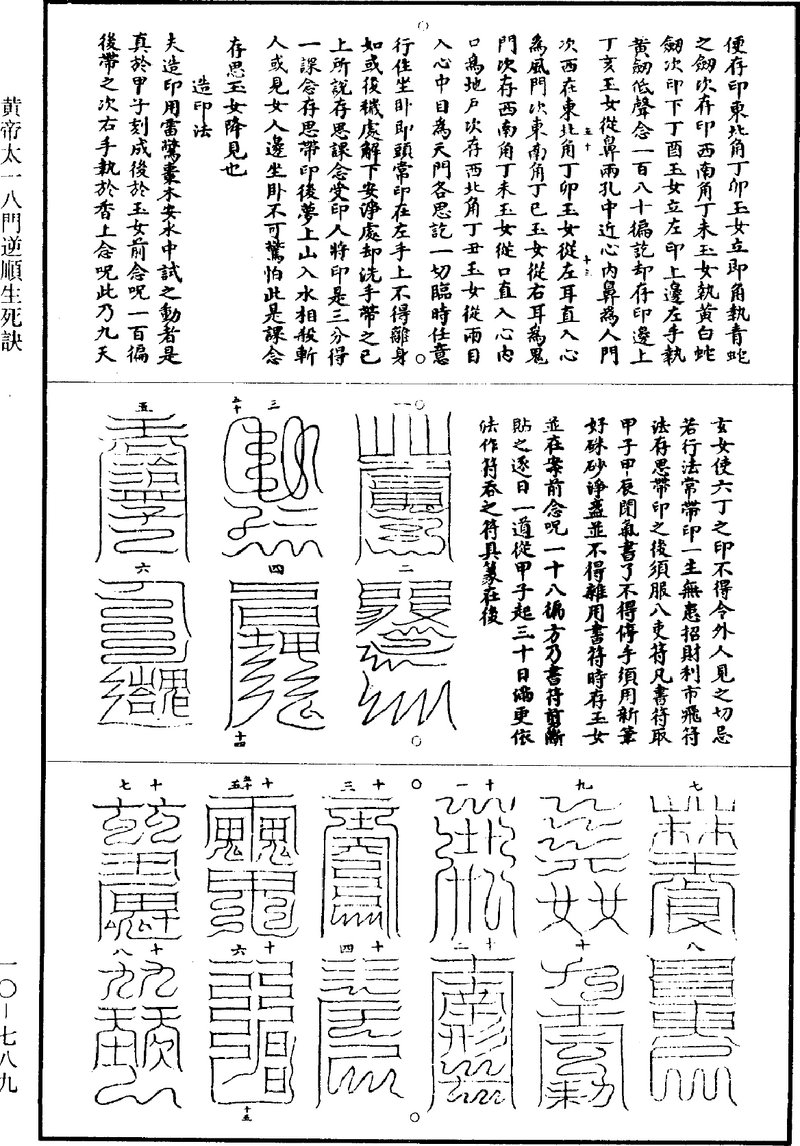 便存印東北角丁卯玉女立印角執青蛇
之劔次存印西南角丁未玉女執黄白蛇
劔次印下丁酉玉女立左印上邊左手執
黄劔低聲念一百八十徧訖却存印邊上
丁亥玉女從鼻兩孔中近心内鼻為人門
次西在東北角丁卯玉女從左耳直入心
為風門次東南角丁巳玉女從右耳為鬼
門次存西南角丁未玉女從口直入心内
口為地户次存西北角丁丑玉女從兩目
入心中目為天門各思訖一切臨時任意
行住坐卧即頭常印在左手上不得離身
如或後穢處解下安淨處却洗手帶之已
上所說存思課念受印人將印是三分得
一課念存思帶印後夢上山入水相殺斬
人或見女人邊坐卧不可驚怕此是課念
存思玉女降見也
造印法
夫造印用雷驚棗木安水中試之動者是
真於甲子刻成後於玉女前念呪一百徧
後帶之次右手執於香上念呪此乃九天
玄女使六丁之印不得令外人見之切忌
若行法常帶印一生無患招財利市飛符
法存思帶印之後須服八吏符凡書符取
甲子甲辰閉氣書了不得停手須用新筆
好硃砂淨盞並不得雜用書符時存玉女
並在案前念呪一十八徧方乃書符剪斷
貼之逐日一道從甲子起三十日滿更依
法作符吞之符具篆在後
一
二
三
四
五
六
七
八
九
十
十一
十二
十三
十四
十五
十六
十七
十八
黄帝太一八門逆順生死訣
一〇-七八九